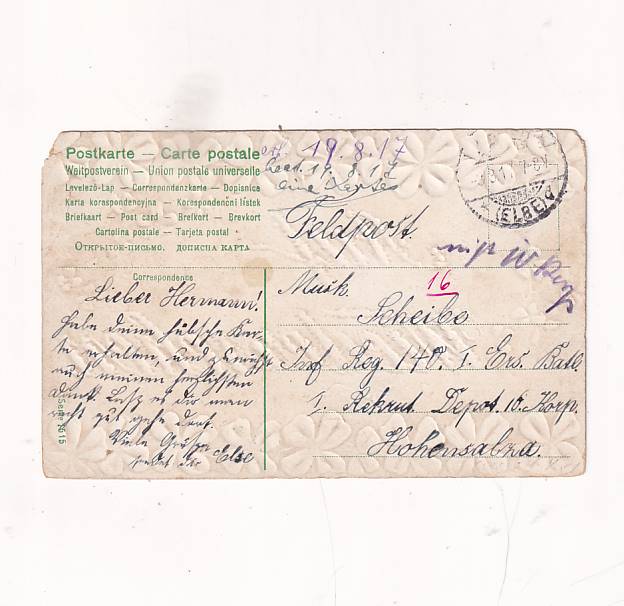 Postkarte — Carte postale
Weltpostverein — Union postale universelle
Levelező-Lap — Correspondenzkarte — Dopisnice
Karta korespondencyjna — Korespondenční lístek
Briefkaart — Post card — Brefkort — Brevkort
Cartolina postale — Tarjeta postal
Открытое-письмо. дописна карта
19.8.17
19.8.17
Feldpost.
(ELBE)
Correspondence
Lieber Hermann!
Habe deine hübsche Kar-
te erhalten, und
auch meinen herzlichsten
Dank. Laß es dir man
gut gehe dort.
Viele Grüße
sendet dir Else
Serie 1615
16
Musk.
Scheibe
Inf Reg. 140. I. Ers. Batl.
I. Rekrut Depot. 10. Korp.
Hohensalza.